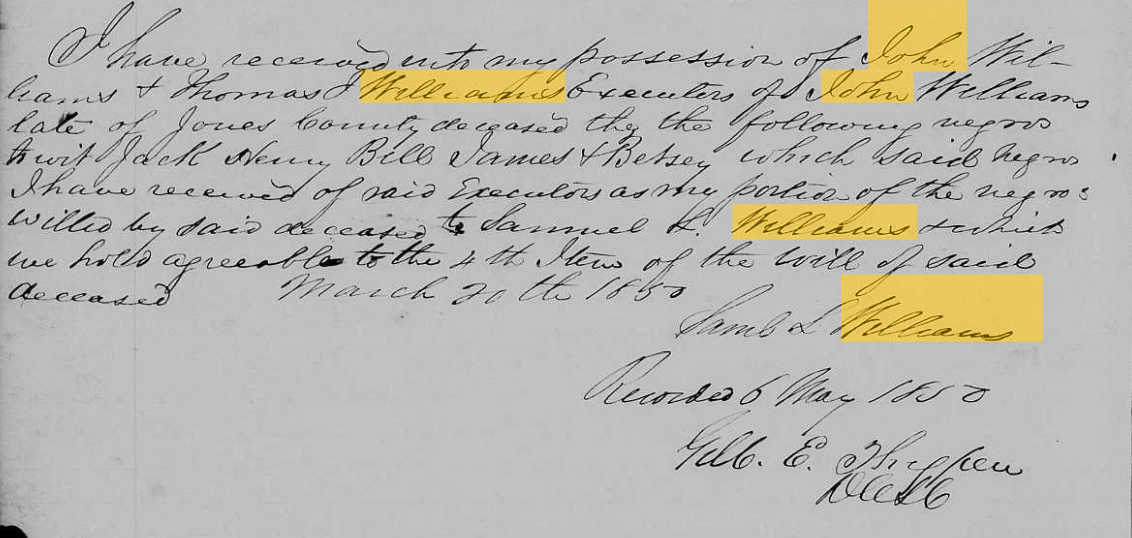 I have received into my possession of John Wil-
liams & Thomas J Williams Executors of John Williams
late of Jones County deceased they the following negros
to wit Jack Henry Bill James & Betsey which said negros
I have received of said Executors as my portion of the negros
willed by said deceased to Samuel L. Williams & which
we hold agreeable to the 4th Item of the will of said
deceased March 20th 1850
Saml L Williams
Recorded 6 May 1850
E.